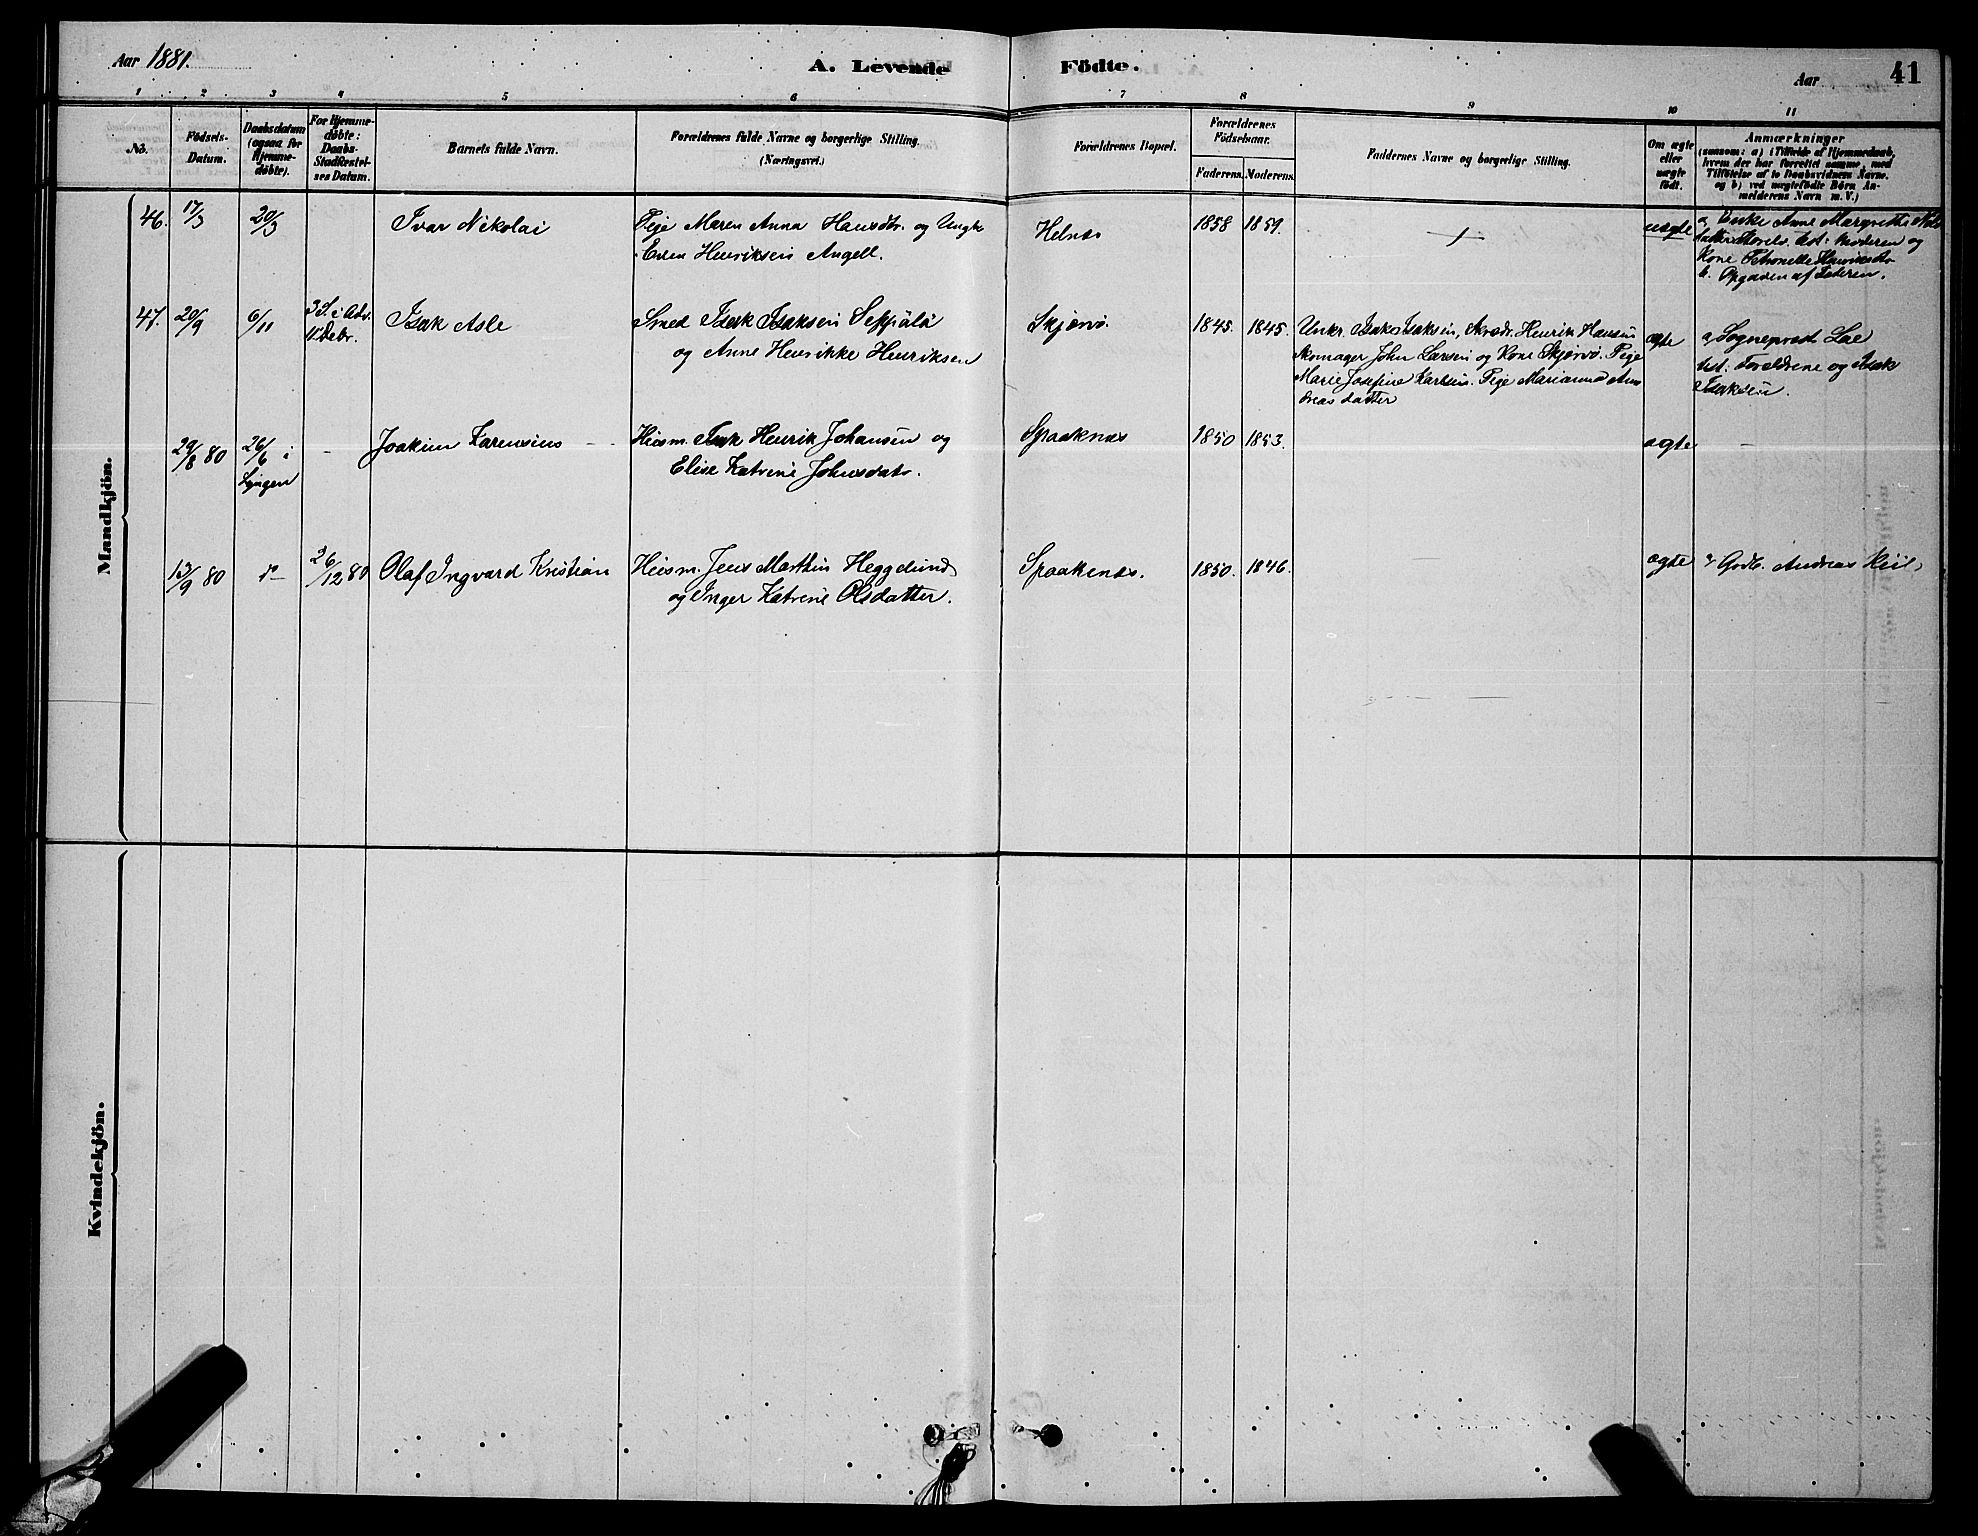 Aar 1881.
A. Levende Födte.
Aar
41
1 2 3 4 5 6 7 8 9 10 11
No.
Födsels-
Datum.
Daabsdatum
(ogsaa for
Hjemme-
døbte).
For Hjemme-
døbte:
Daabs-
Stadfæstel-
ses Datum.
Barnets fulde Navn.
Forældrenes fulde Navne og borgerlige Stilling.
(Næringsvei.)
Forældrenes Bopæl.
Forældrenes
Födselsaar.
Faderens. Moderens.
Faddernes Navne og borgerlige Stilling.
Om ægte
eller
uægte
født.
Anmærkninger
(saasom: a) i Tilfælde af Hjemmedaab,
hvem der har forrettet samme, med
Tilføielse af to Daabsvidners Navne.
og b) ved uægtefødte Börn An-
melderens Navn m. V.)
Mandkjön.
46. 17/3 20/3 Ivar Nikolai
Pige Maren Anna Hansdtr. og Ungk.
Eden Henriksen Angell.
Helnes 1858 1859. uægte
a, Enke Anne Margrethe
test: Moderen og
Kone Petronelle
b. Opgaven af Faderen.
47. 20/9 6/11 3 S. i Adv.
11 Debr.
Isak Asle
Smed Isak Isaksen Seppälä
og Anne Henrikke Henriksen
Skjærvø. 1845. 1845.
Unkr. Isak Isaksen, Skrædr. Henrik Hansen
Skomager John Larsen og Kone Skjærvø. Pige
Marie Josefine Karlsen. Pige Marianna An
dreas datter
ægte
a, Sogneprest Lae
test: Forældrene og Isak
Isaksen.
29/8 80 26/6 i
Lyngen
- Joakim Larensius -
Huusm. Isak Henrik Johansen og
Elise Katrine Johnsdatr.
Spaaknes 1850 1853. ægte -
13/9 80 do - 26/12 80 Olaf Ingvard Kristian
Huusm. Jens Marthin Heggelund
og Inger Katrine Olsdatter.
Spaakenes. 1850. 1846. ægte
a, Gdb. Andreas Kiil
Kvindekjön.